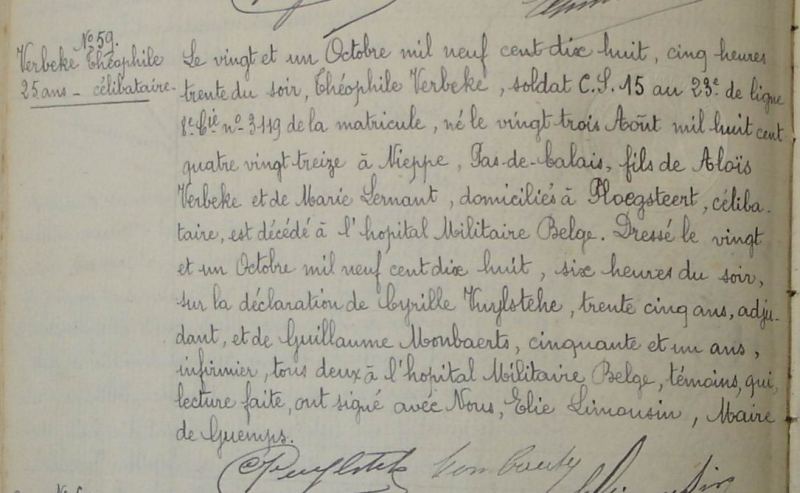 Nº 59.
Verbeke Théophile
25 ans - célibataire.
Le vingt et un Octobre mil neuf cent dix huit, cinq heures
trente du soir, Théophile Verbeke, soldat C.S. 15 au 23e de ligne
8e Cie nº 3119 de la matricule, né le vingt trois Août mil huit cent
quatre vingt treize à Nieppe, Pas-de-Calais, fils de Aloïs
Verbeke et de Marie Lernant, domiciliés à Ploegsteert, céliba-
taire, est décédé à l'hopital Militaire Belge. Dressé le vingt
et un Octobre mil neuf cent dix huit, six heures du soir,
sur la déclaration de Cyrille Vuylsteke, trente cinq ans, adju-
dant, et de Guillaume Monbaerts, cinquante et un ans,
infirmier, tous deux à l'hopital Militaire Belge, témoins, qui,
lecture faite, ont signé avec Nous, Elie Limousin, Maire
de Guemps.